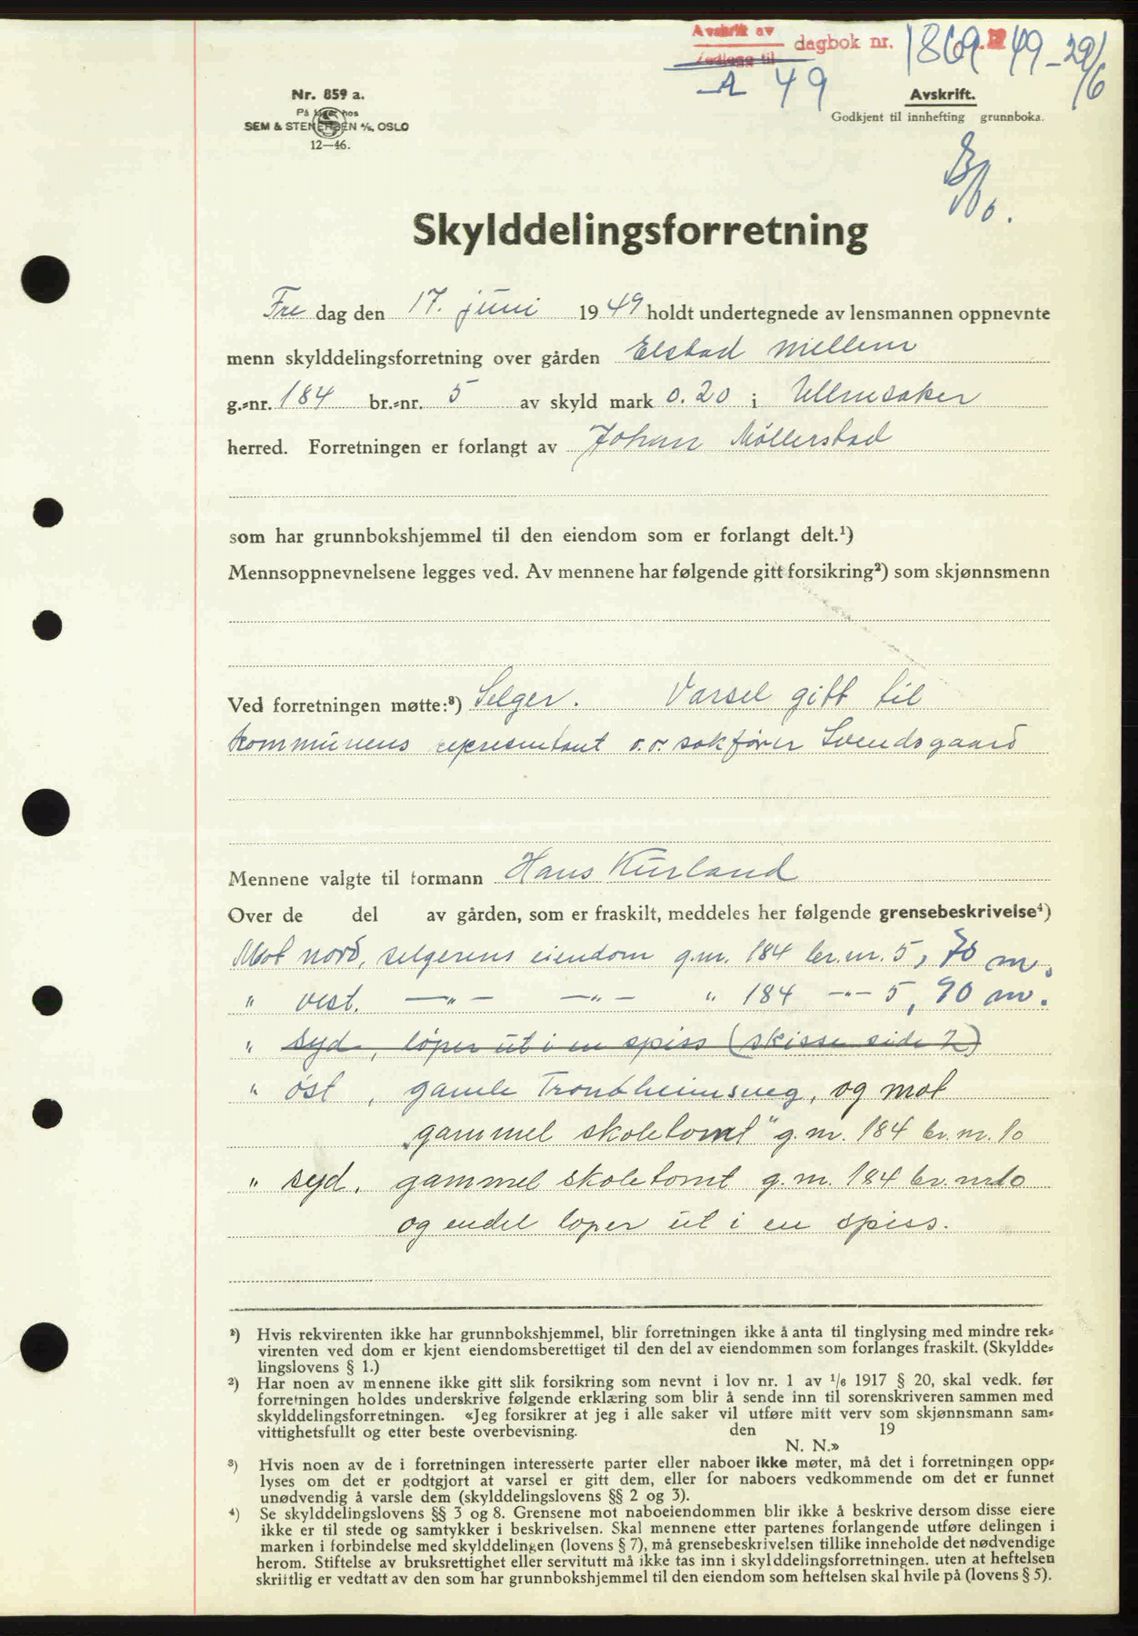 Avskrift av
Vedlegg til dagbok nr. 1869 49-29/6
A 49
Nr. 859 a.
På lager hos
SEM & STENERSEN A/S, OSLO
12—46.
Avskrift.
Godkjent til innhefting grunnboka.
Skylddelingsforretning
Fre dag den 17. juni 1949 holdt undertegnede av lensmannen oppnevnte
menn skylddelingsforretning over gården Elstad mellem
g.-nr. 184 br.-nr. 5 av skyld mark 0.20 i Ullensaker
herred. Forretningen er forlangt av Johan Møllerstad
som har grunnbokshjemmel til den eiendom som er forlangt delt.¹)
Mennsoppnevnelsene legges ved. Av mennene har følgende gitt forsikring²) som skjønnsmenn
Ved forretningen møtte:³) Selger. Varsel gitt til
kommunens representant o.r. sakfører Svendsgaard
Mennene valgte til formann Hans Kurland
Over de del av gården, som er fraskilt, meddeles her følgende grensebeskrivelse⁴)
Mot nord, selgerens eiendom g.nr. 184 br.nr. 5, 70 m.
" vest. —"— —"— " 184 —"— 5, 90 m.
" syd, løper ut i en spiss (skisse side 2)
" øst, gamle Trondheimsveg, og mot
„gammel skoletomt" g.nr. 184 br.nr. 10
" syd. gammel skoletomt g.nr. 184 br.nr 10
og endel løper ut i en spiss.
¹) Hvis rekvirenten ikke har grunnbokshjemmel, blir forretningen ikke å anta til tinglysing med mindre rek-
virenten ved dom er kjent eiendomsberettiget til den del av eiendommen som forlanges fraskilt. (Skyldde-
lingslovens § 1.)
²) Har noen av mennene ikke gitt slik forsikring som nevnt i lov nr. 1 av 1/6 1917 § 20, skal vedk. før
forretningen holdes underskrive følgende erklæring som blir å sende inn til sorenskriveren sammen med
skylddelingsforretningen. «Jeg forsikrer at jeg i alle saker vil utføre mitt verv som skjønnsmann sam-
vittighetsfullt og etter beste overbevisning. den 19
N. N.»
³) Hvis noen av de i forretningen interesserte parter eller naboer ikke møter, må det i forretningen opp-
lyses om det er godtgjort at varsel er gitt dem, eller for naboers vedkommende om det er funnet
unødvendig å varsle dem (skylddelingslovens §§ 2 og 3).
⁴) Se skylddelingslovens §§ 3 og 8. Grensene mot naboeiendommen blir ikke å beskrive dersom disse eiere
ikke er til stede og samtykker i beskrivelsen. Skal mennene etter partenes forlangende utføre delingen i
marken i forbindelse med skylddelingen (lovens § 7), må grensebeskrivelsen tillike inneholde det nødvendige
herom. Stiftelse av bruksrettighet eller servitutt må ikke tas inn i skylddelingsforretningen, uten at heftelsen
skriftlig er vedtatt av den som har grunnbokshjemmel til den eiendom som heftelsen skal hvile på (lovens § 5).